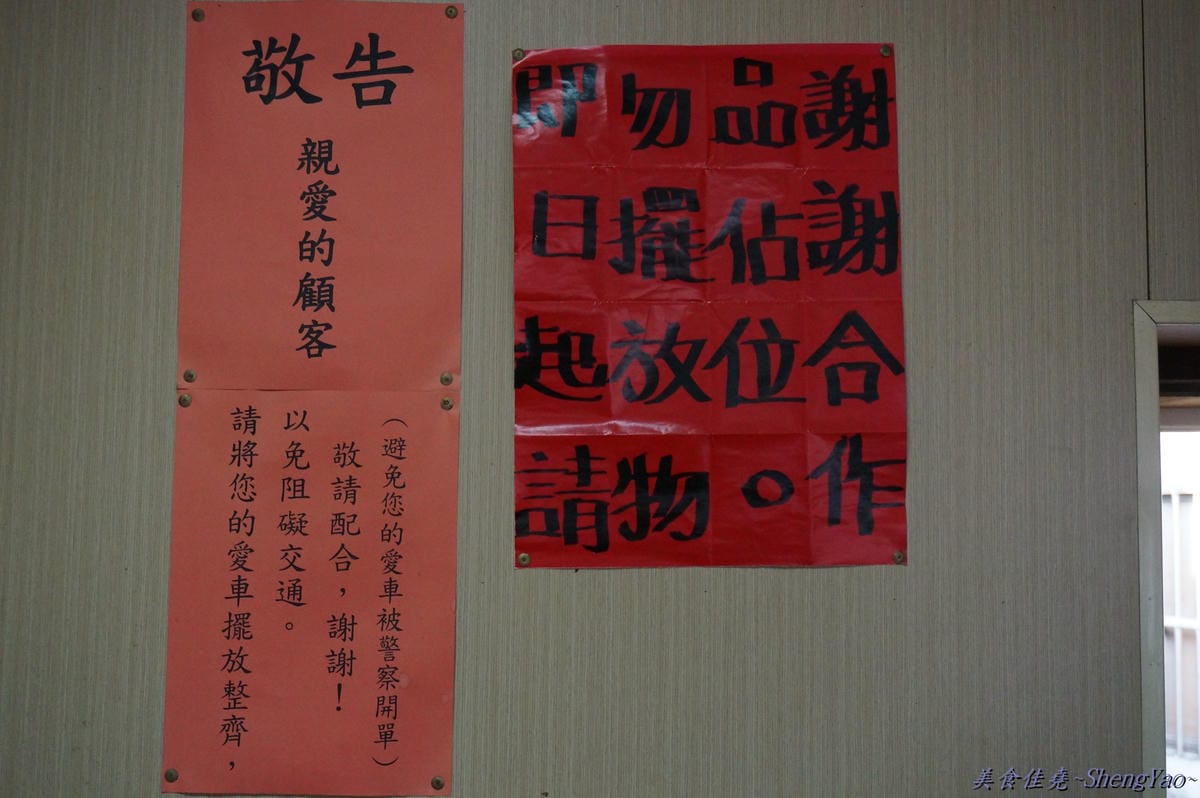 敬告
親愛的顧客
請將您的愛車擺放整齊，
以免阻礙交通。
敬請配合，謝謝！
（避免您的愛車被警察開單）
即日起請
勿擺放物
品佔位。
謝謝合作
美食佳堯~ShengYao~